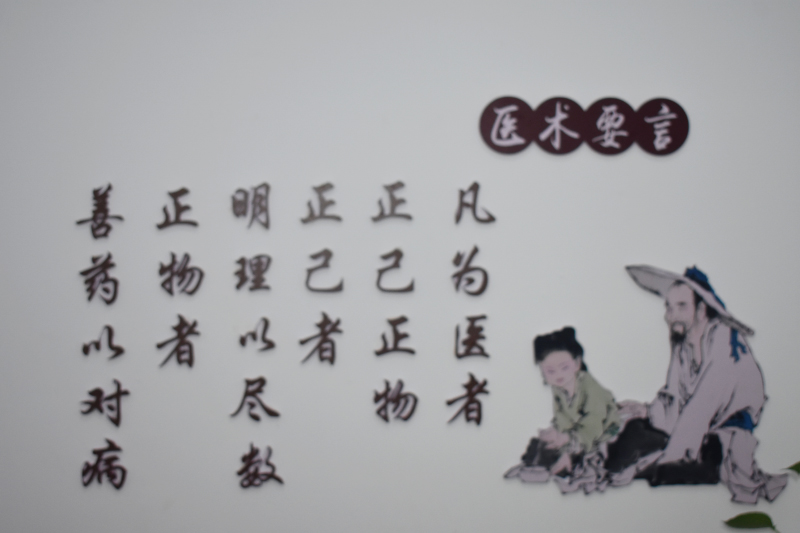 医术要言
凡为医者
正己正物
正己者
明理以尽数
正物者
善药以对病